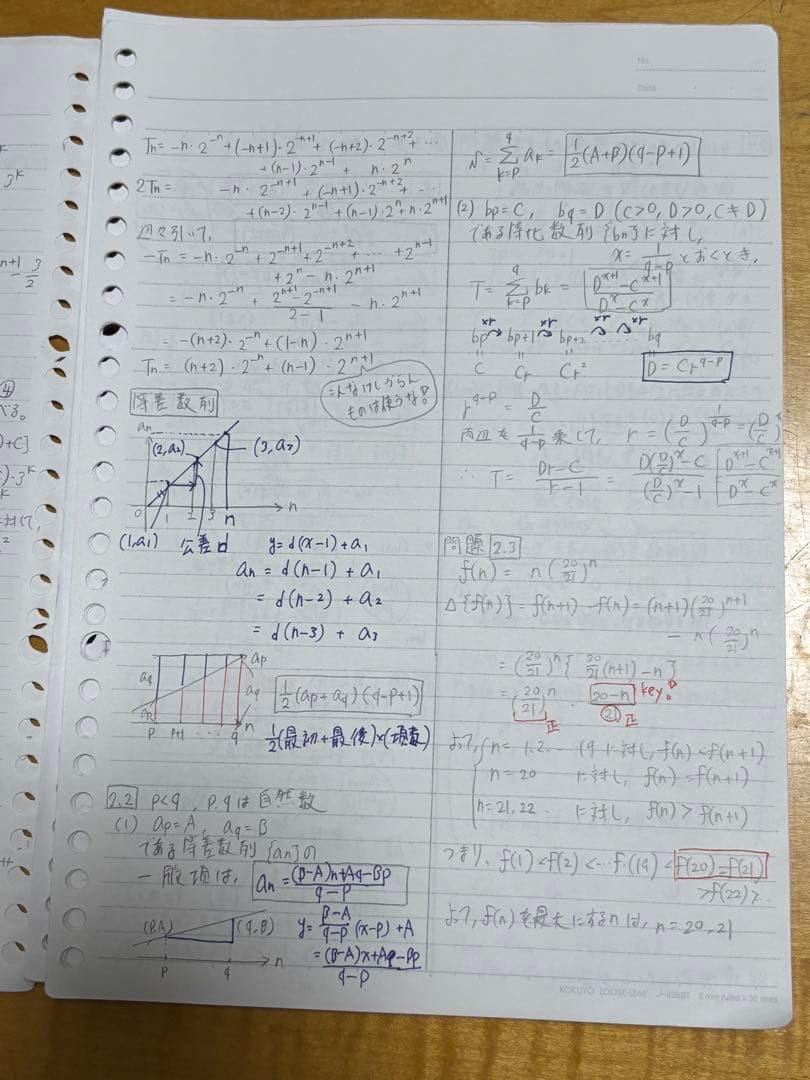 3^k
n+1 - 3/2
④
+C]
)・3^k
Tn = -n・2^{-n} + (-n+1)・2^{-n+1} + (-n+2)・2^{-n+2} + …
+ (n-1)・2^{n-1} + n・2^n
2Tn = -n・2^{-n+1} + (-n+1)・2^{-n+2} + …
+ (n-2)・2^{n-1} + (n-1)・2^n + n・2^{n+1}
辺々引いて,
-Tn = -n・2^{-n} + 2^{-n+1} + 2^{-n+2} + … + 2^{n-1}
+ 2^n - n・2^{n+1}
= -n・2^{-n} + (2^{n+1} - 2^{-n+1})/(2-1) - n・2^{n+1}
= -(n+2)・2^{-n} + (1-n)・2^{n+1}
Tn = (n+2)・2^{-n} + (n-1)・2^{n+1}
こんなけしからん
ものは使うな!
等差数列
an
(2, a2)
(3, a3)
0 1 2 3 n n
(1, a1) 公差d y = d(x-1) + a1
an = d(n-1) + a1
= d(n-2) + a2
= d(n-3) + a3
ap
aq aq
ap
P P+1 … q n
1/2(ap+aq)(q-p+1)
1/2(最初+最後)×(項数)
2.2 P<q, P.qは自然数
(1) ap=A, aq=B
である等差数列{an}の
一般項は, an = ((B-A)n+Aq-Bp)/(q-p)
(P,A) (q,B) y = (B-A)/(q-p) (x-p) + A
= ((B-A)x+Aq-Bp)/(q-p)
P q n
S = Σ_{k=p}^{q} ak = 1/2(A+B)(q-p+1)
(2) bp=C, bq=D (C>0, D>0, C≠D)
である等比数列{bn}に対し,
x = 1/(q-p) とおくとき,
T = Σ_{k=p}^{q} bk = (D^{x+1} - C^{x+1})/(D^x - C^x)
×r ×r ×r ×r
bp bp+1 bp+2 …… bq
" " " "
C Cr Cr² D = Cr^{q-p}
r^{q-p} = D/C
両辺を 1/(q-p) 乗して, r = (D/C)^{1/(q-p)} = (D/C)^x
∴ T = (Dr-C)/(r-1) = (D(D/C)^x - C)/((D/C)^x - 1) (D^{x+1} - C^{x+1})/(D^x - C^x)
問題 2.3
f(n) = n(20/21)^n
Δ{f(n)} = f(n+1) - f(n) = (n+1)(20/21)^{n+1}
- n(20/21)^n
= (20/21)^n { 20/21 (n+1) - n }
= (20/21)^n・(20-n)/21 key!
正 正
よって, n = 1.2.… 19 に対し, f(n) < f(n+1)
n = 20 に対し, f(n) = f(n+1)
n = 21, 22 … に対し, f(n) > f(n+1)
つまり, f(1) < f(2) < … f(19) < f(20) = f(21)
> f(22) > …
よって, f(n)を最大にするnは, n = 20, 21
No.
Date
KOKUYO LOOSE-LEAF 6 mm ruled × 36 lines